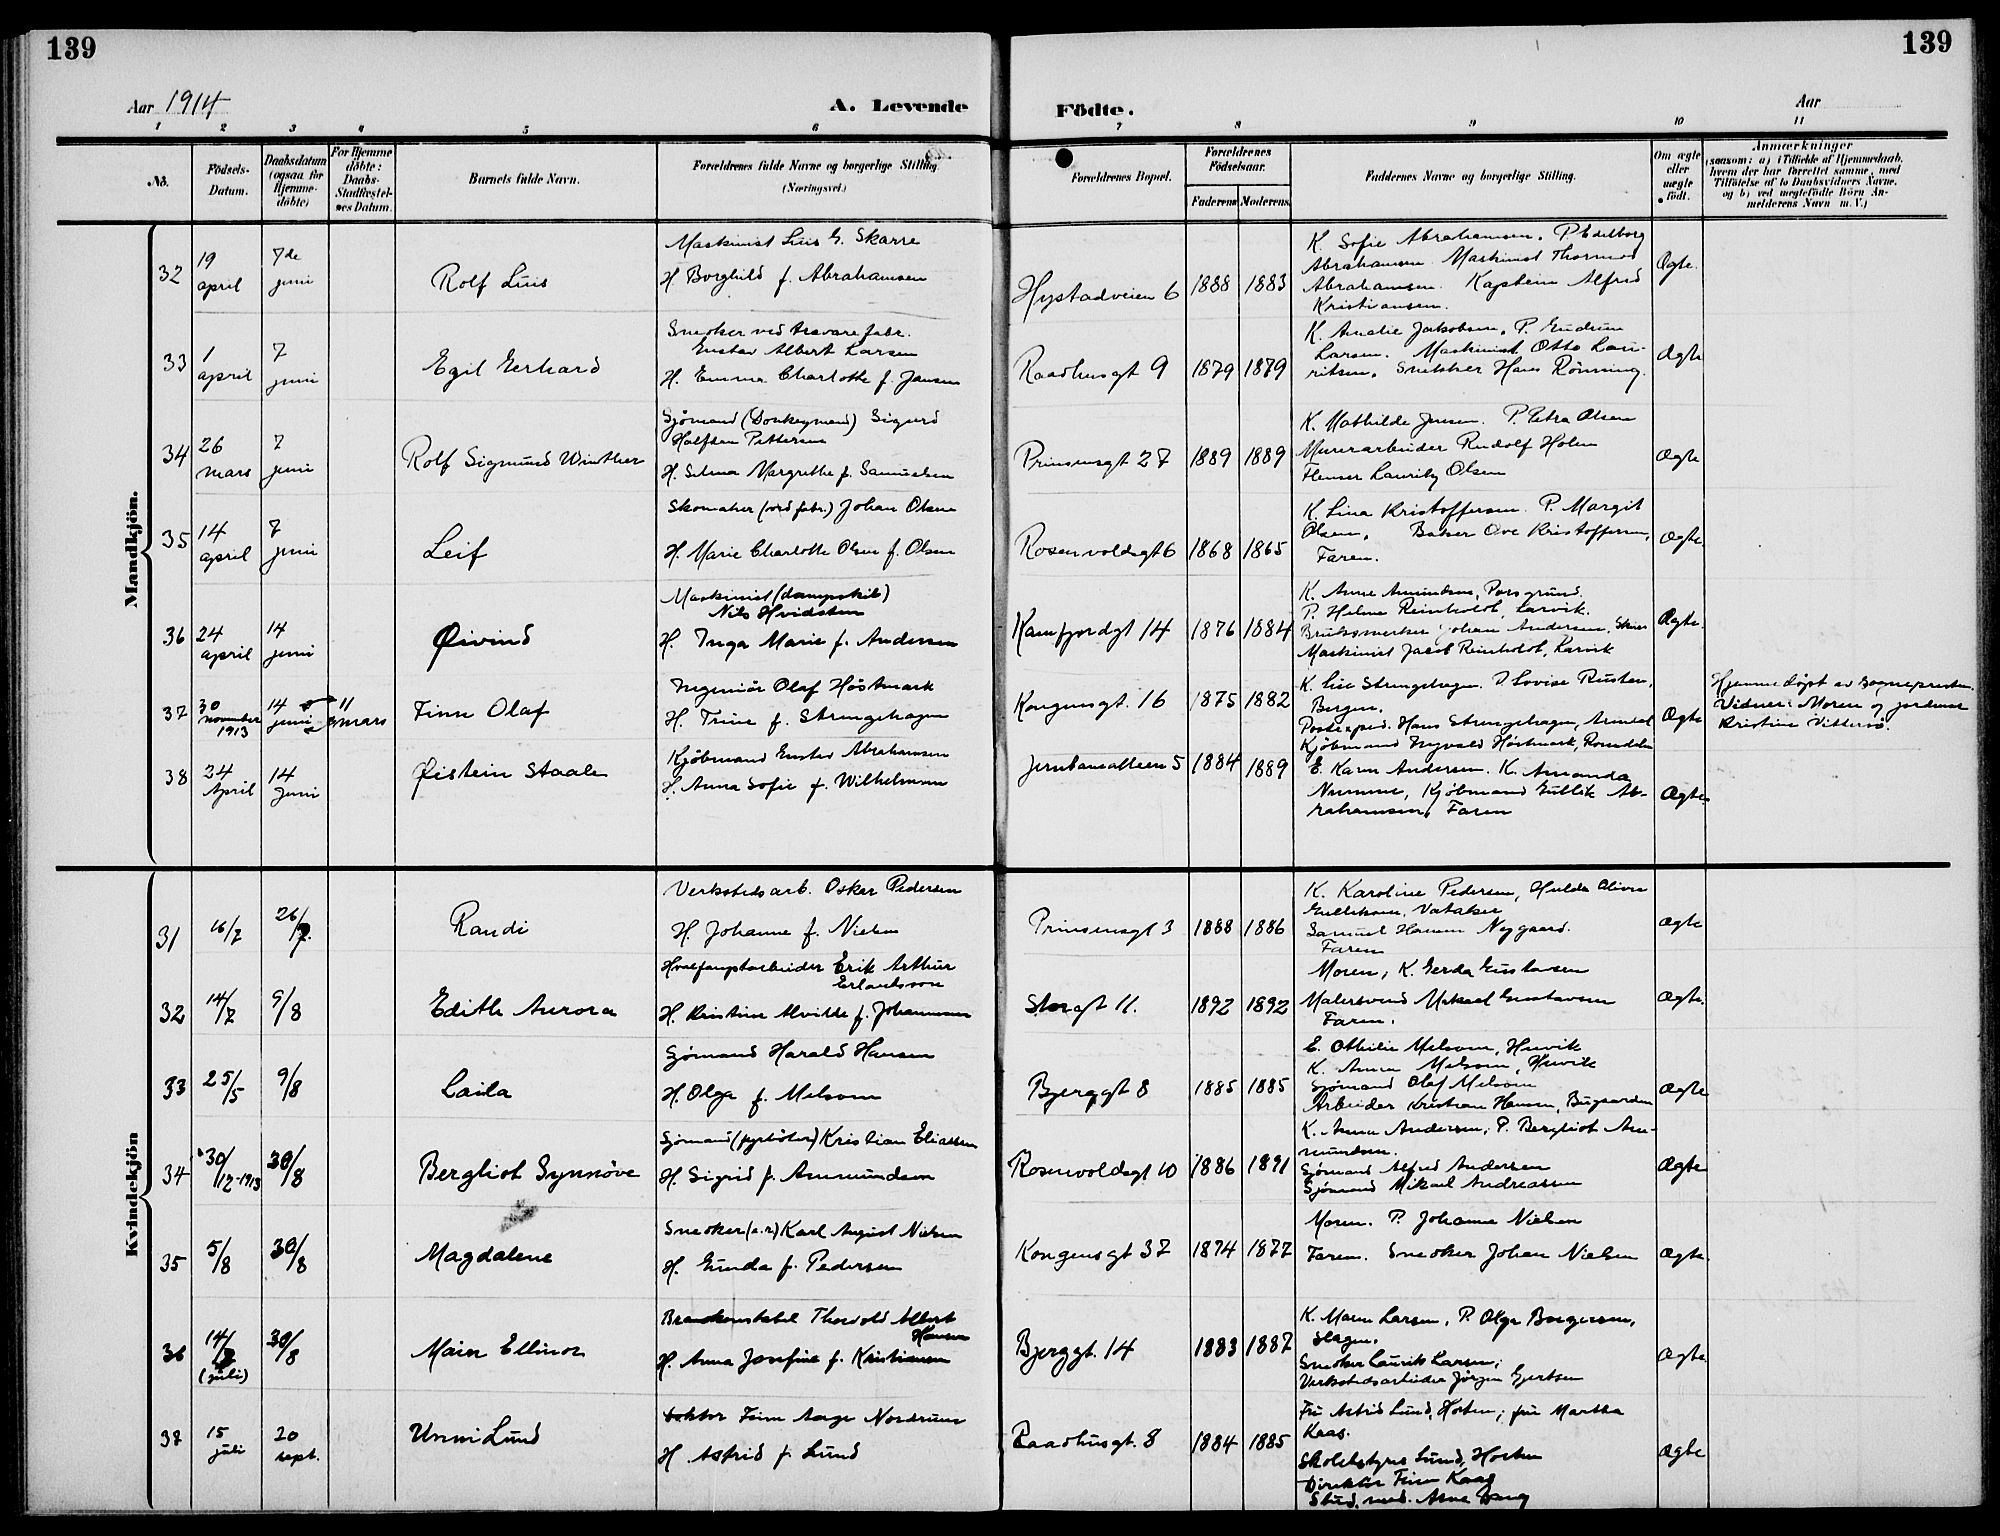 139
139
Aar 1914
A. Levende
Födte.
Aar
1 2 3 4 5 6 7 8 9 10 11
No.
Födsels-Datum.
Daabsdatum (ogsaa for Hjemme-döbte)
For Hjemme döbte: Daabs-Stadfæstel-es Datum.
Barnets fulde Navn.
Forældrenes fulde Navne og borgerlige Stilling.
(Næringsvei.)
Forældrenes Bopæl.
Forældrenes Födselsaar.
Faderens Moderens
Faddernes Navne og borgerlige Stilling.
Om ægte eller uægte födt.
Anmærkninger
(saasom: a) i Tilfælde af Hjemmedaab, hvem der har forrettet samme, med Tilföielse af to Daabsvidners Navne, og b) ved uægtefödte Börn An-melderens Navn m. V.)
Mandkjön.
32
19 april
7de juni
Rolf Luis
Maskinist Luis G. Skarre
H. Borghild f. Abrahamsen
Hystadveien 6
1888 1883
K. Sofie Abrahamsen. P. Edelborg
Abrahamsen Maskinist Thormod
Abrahamsen. Kaptein Alfred
Kristiansen.
Ægte.
33
1 april
7 juni
Egil Gerhard
Snedker ved trævarefabr.
Gustav Albert Larsen
H. Emma Charlotte f. Jansen
Raadhusgt 9
1879 1879
K. Amalie Jakobsen, P. Gudrun
Larsen. Maskinist Otto Lau-
ritsen, Snekker Hans Rønning.
Ægte
34
26 mars
7 juni
Rolf Sigmund Winther
Sjømand (Donkeymand) Sigurd
Halfdan Pettersen
H. Selma Margrethe f. Samuelsen
Prinsensgt 27
1889 1889
K. Mathilde Jensen. P. Petra Olsen
Murerarbeider Rudolf Holm
Flenser Lauritz Olsen
Ægte
35
14 april
7 juni
Leif
Skomaker (ved fabr.) Johan Olsen
H. Marie Charlotte Olsen f. Olsen
Rosenvoldsgt 6
1868 1865
K. Lina Kristoffersen. P. Margit
Olsen, Baker Ove Kristoffersen,
Faren.
Ægte.
36
24 april
14 juni
Øivind
Maskinist (dampskib)
Nils Hvidsten
H. Inga Marie f. Andersen
Kamfjordgt 14
1876 1884
K. Anne Amundsen, Porsgrund.
P. Helene Reinholdt, Larvik.
Bruksmerker Johan Andersen,
Maskinist Jacob Reinholdt, Larvik
Ægte.
37
30 november 1913
14 juni
11 mars
Finn Olaf
Ingeniör Olaf Höstmark
H. Trine f. Strengehagen
Kongensgt. 16
1875 1882
K. Lise Strengehagen. P. Lovise Rusten,
Bergen.
Postexped. Hans Strengehagen,
Kjøbmand Ingvald Høstmark, Romsdalen
Ægte
Hjemmedøpt av sognepresten.
Vidner: Moren og jordmor
Kristine Vittersø.
38
24 April
14 Juni
Øistein Staale
Kjøbmand Gustav Abrahamsen
H. Anna Sofie f. Wilhelmsen
Jernbanealleen 5
1884 1889
E. Karen Andersen. K. Amanda
Numme, Kjøbmand Gullik Ab-
rahamsen, Faren
Ægte
Kvindekjön
31
16/7
26/7.
Randi
Verkstedsarb. Oskar Pedersen
H. Johanne f. Nielsen
Prinsensgt 3
1888 1886
K. Karoline Pedersen, Hulda Olivia
Gulliksen,
Samuel Hansen Nygaard.
Faren
Ægte
32
14/7
9/8
Edith Aurora
Hvalfangstarbeider Erik Arthur
Erlandsson
H. Kristine Alvilde f. Johannessen
Storgt 11.
1892 1892
Moren, K. Gerda Gustavsen
Malersvend Mikael Gustavsen
Faren.
Ægte.
33
25/5
9/8
Laila
Sjømand Harald Hansen
H. Olga f. Melsom
Bjerggt 8
1885 1885
E. Othilie Melsom, Husvik
K. Anna Melsom, Husvik
Sjømand Olaf Melsom
Arbeider Kristian Hansen, Bugaarden
Ægte
34
30/12-1913
30/8
Bergliot Synnöve
Sjömand (fyrbøter) Kristian Eliassen
H. Sigrid f. Ammundsen
Rosenvoldsgt 10
1886 1891
K. Anna Andersen, P. Bergliot Am-
mundsen.
Sjømand Alfred Andersen
Sjømand Mikael Andreassen
Ægte
35
5/8
30/8
Magdalene
Snedker (a.r) Karl August Nielsen
H. Gunda f. Pedersen
Kongensgt 37
1874 1877
Moren. P. Johanne Nielsen
Faren. Snedker Johan Nielsen
Ægte.
36
14/7
(juli)
30/8
Main Ellinor
Brandkonstabel Thorvald Albert
Hansen
H. Anna Josefine f. Kristiansen
Bjerggt. 14
1883 1887
K. Maren Larsen, P. Olga Borgersen,
Slagen.
Snedker Laurits Larsen;
Verkstedsarbeider Jørgen Gjertsen
Ægte
37
15 juli
20 sept.
Unni Lund
Doktor Finn Aage Nordrum
H. Astrid f. Lund
Raadhusgt. 8
1884 1885
Fru Astrid Lund, Horten; fru Martha
Kaas.
Skolebestyrer Lund, Horten
Direktör Finn Kaas
Stud. med. Arne
Ægte